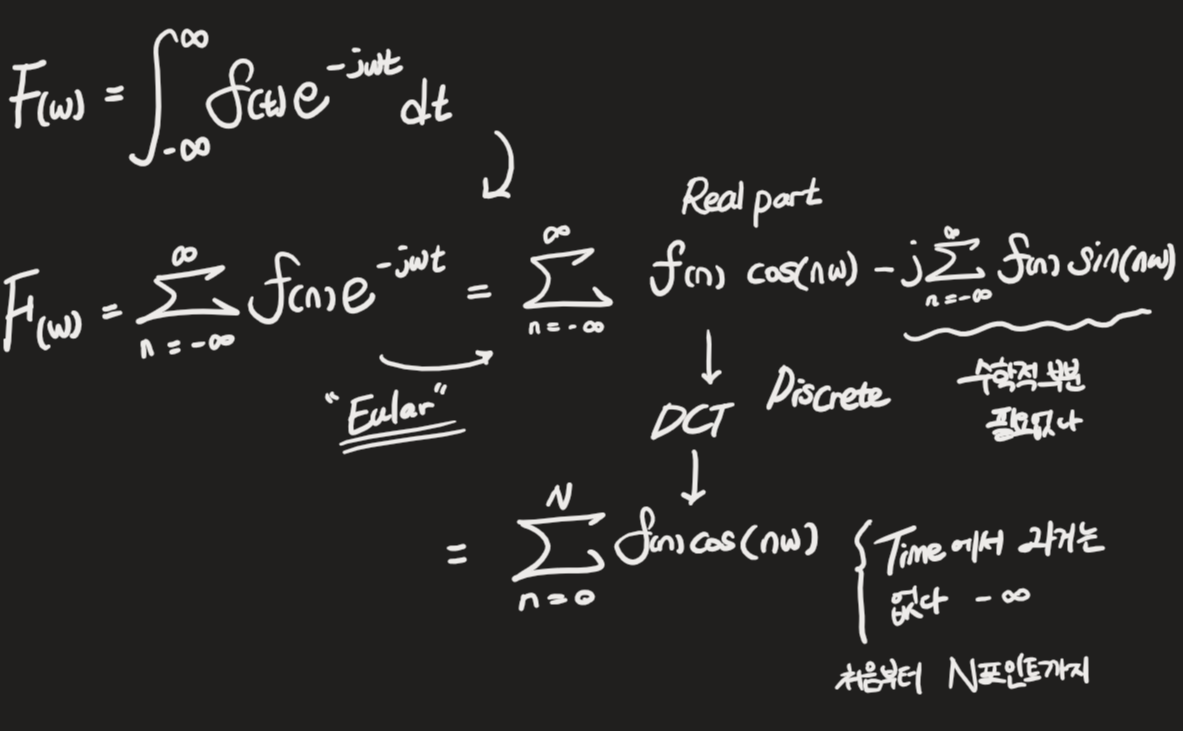 F(w) = ∫_{-∞}^{∞} f(t) e^{-jwt} dt
Real part
F(w) = ∑_{n=-∞}^{∞} f(n) e^{-jwt} = ∑_{n=-∞}^{∞} f(n) cos(nw) - j ∑_{n=-∞}^{∞} f(n) sin(nw)
"Eular"
↓
DCT Discrete
수학적 부분
필요없다
↓
= ∑_{n=0}^{N} f(n) cos(nw)
{ Time에서 과거는
없다 -∞
처음부터 N포인트까지